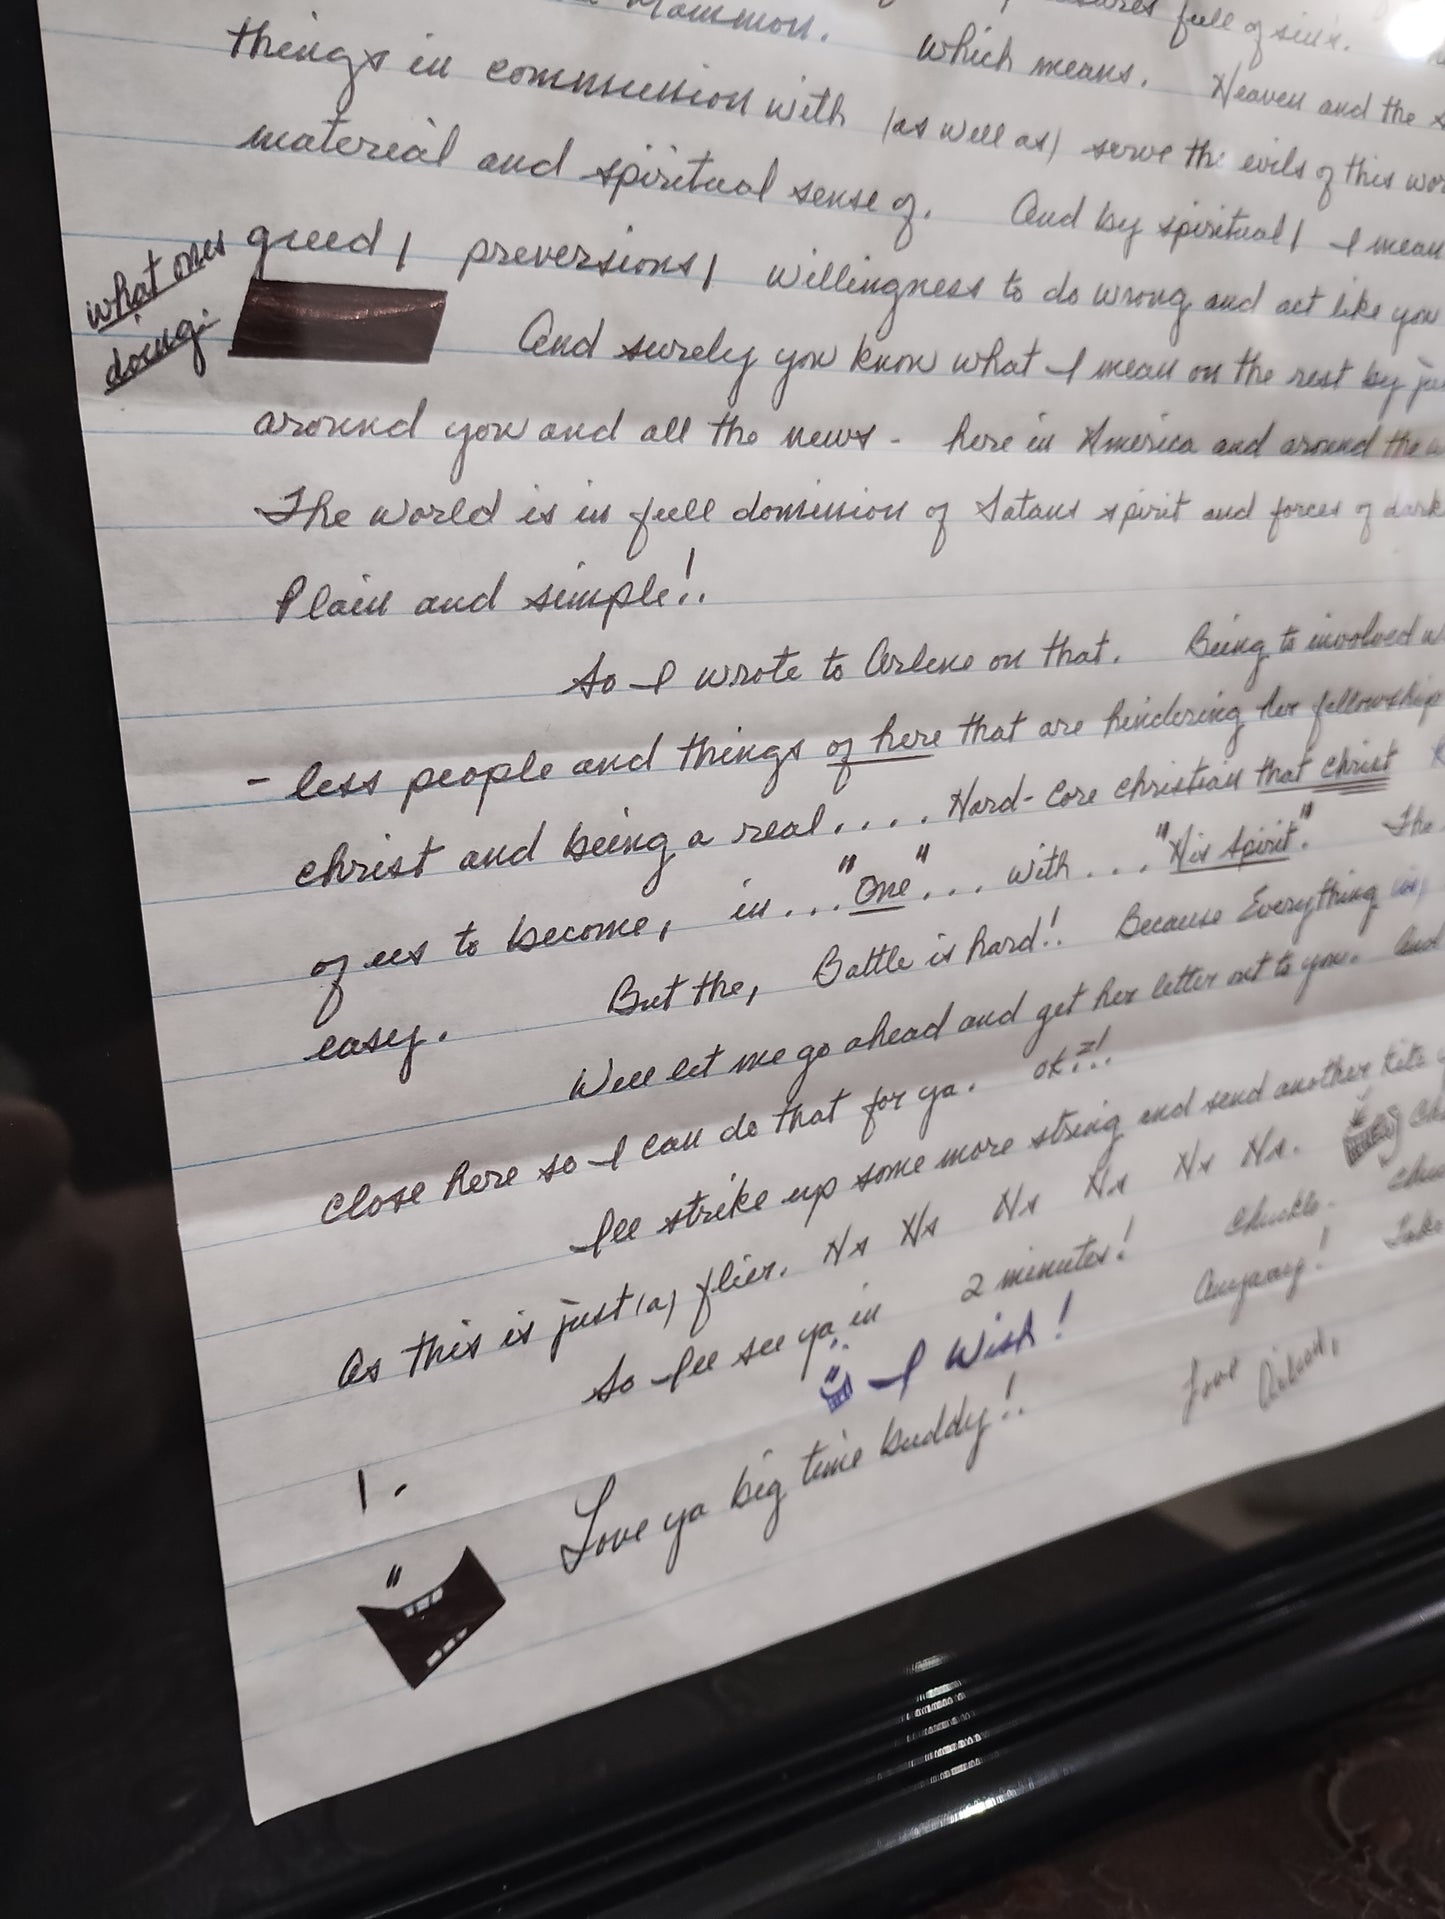 Mammon. which means. Heaven and the
full of sin's.
things in communion with (as well as) serve the evils of this
material and spiritual sense of. And by spiritual, I mean
greed, preversions, willingness to do wrong and act like you
what ones doing.
And surely you know what I mean on the rest by
around you and all the news - here in America and around the
The world is in full dominion of Satans spirit and forces of
Plain and simple!.
So I wrote to Arlene on that. Being to involved
- less people and things of here that are hindering her fellowship
christ and being a real.... Hard-core christian that christ
of us to become, in... "One"... with... "His Spirit". The
But the, Battle is hard!. Because Everything
easy.
Well let me go ahead and get her letter out to you. And
close here so I can do that for ya. ok?!.
Ill strike up some more string and send another kite
As this is just (a) flier. Ha Ha Ha Ha Ha Ha.
So Ill see ya in 2 minutes! Chuckle.
I Wish! Anyway! Take
1. Love ya big time buddy!. Love